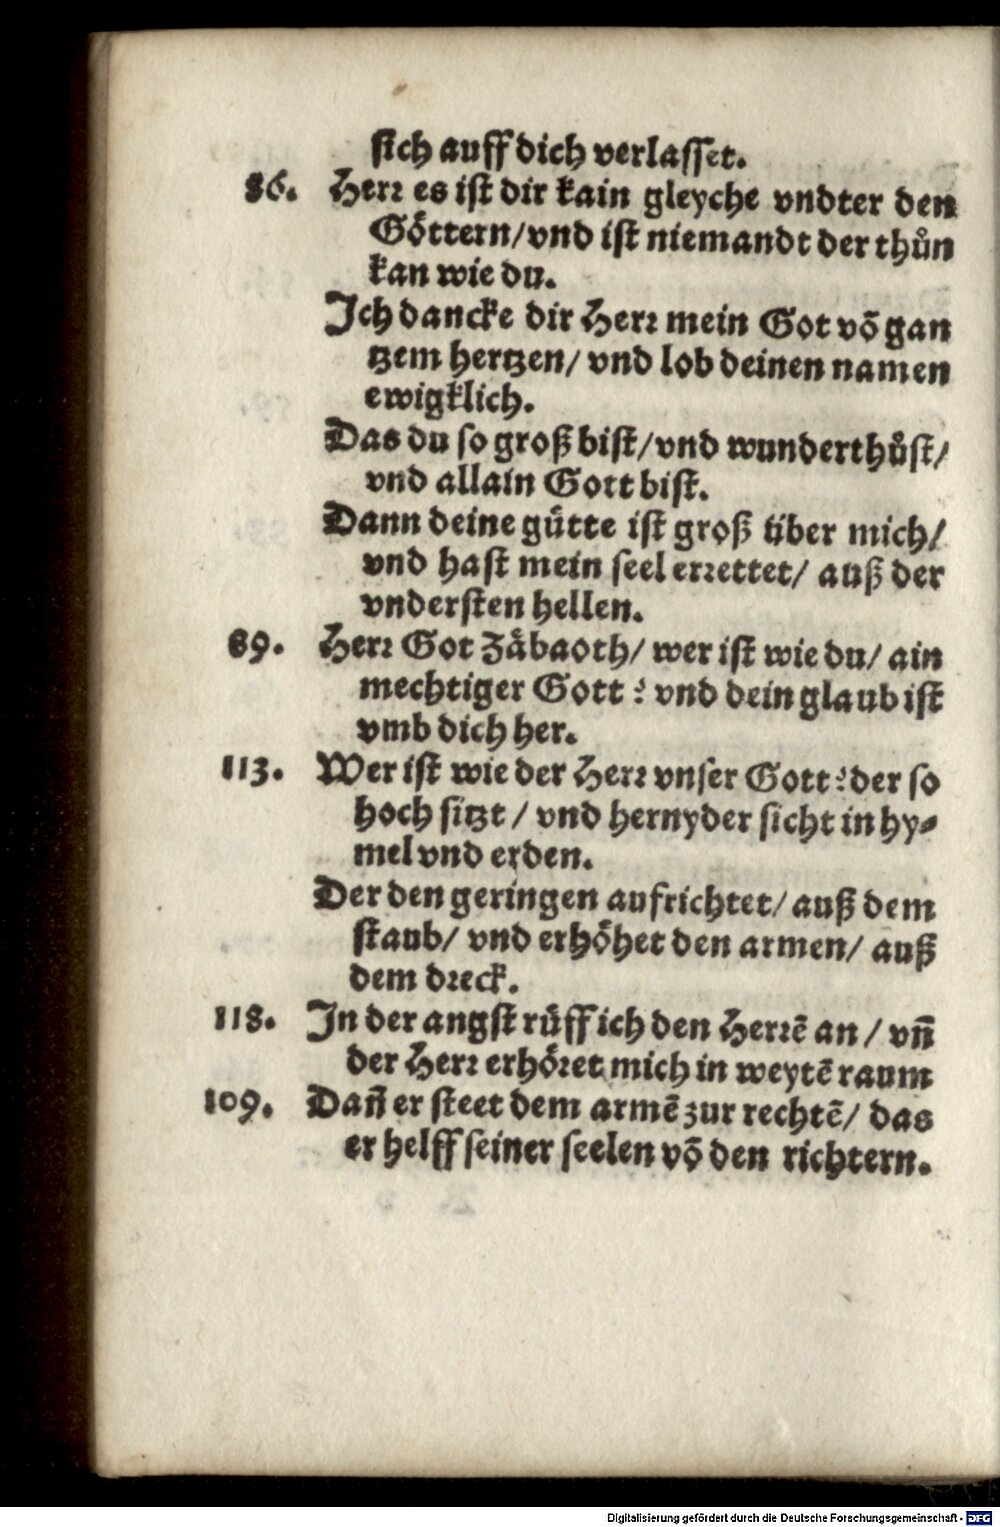 sich auff dich verlasset.
86. Herr es ist dir kain gleyche vndter den
Goͤttern/vnd ist niemandt der thůn
kan wie du.
Ich dancke dir Herr mein Got võ gan
tzem hertzen/ vnd lob deinen namen
ewigklich.
Das du so groß bist/vnd wunderthůst/
vnd allain Gott bist.
Dann deine guͤtte ist groß über mich/
vnd hast mein seel errettet/ auß der
vndersten hellen.
89. Herr Got Zaͤbaoth/ wer ist wie du/ ain
mechtiger Gott? vnd dein glaub ist
vmb dich her.
113. Wer ist wie der Herr vnser Gott? der so
hoch sitzt / vnd hernyder sicht in hy-
mel vnd erden.
Der den geringen aufrichtet/ auß dem
staub/ vnd erhoͤhet den armen/ auß
dem dreck.
118. In der angst ruͤff ich den Herrē an / vñ
der Herr erhoͤret mich in weytē raum
109. Dañ er steet dem armē zur rechtē/ das
er helff seiner seelen võ den richtern.
Digitalisierung gefördert durch die Deutsche Forschungsgemeinschaft - DFG